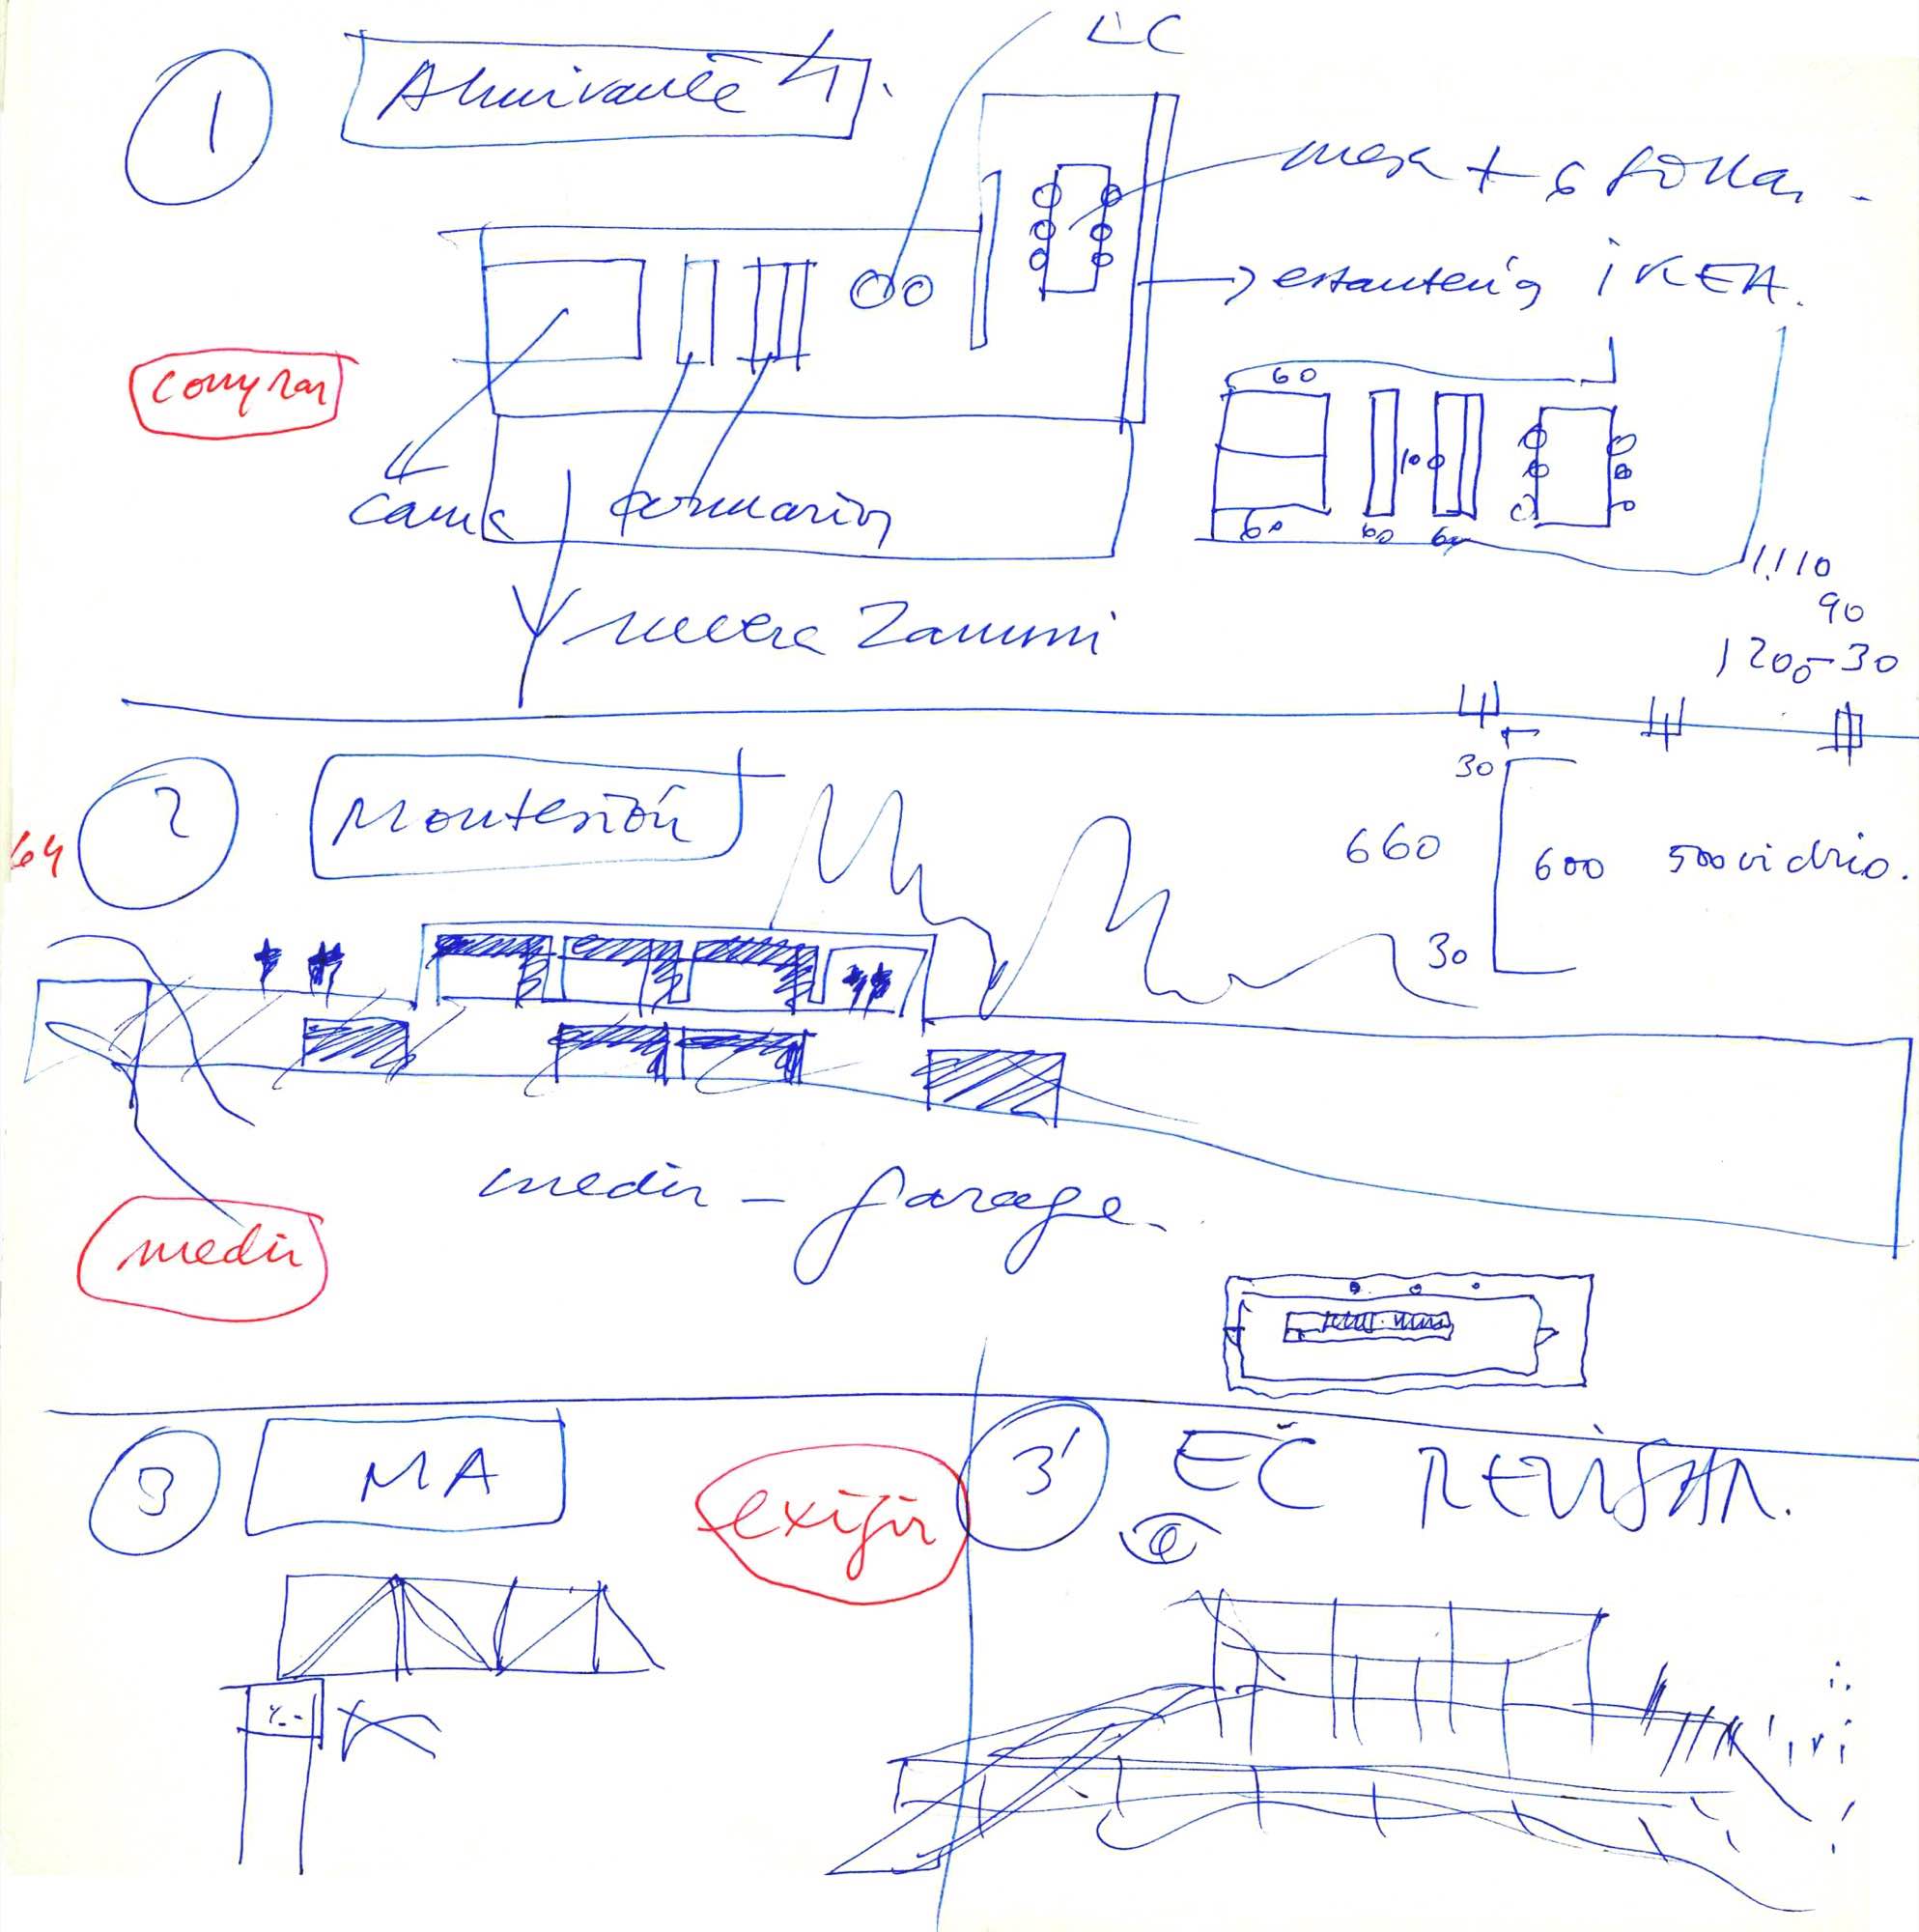 1
Almirante 4.
LC
mesa + 6 sillas.
estantería IKEA.
comprar
60
100
60 60 60
cama armarios
1.110
90
1200-30
nevera Zanussi
2
Montesión
64
30
660
600 500 vidrio.
30
medir - garage.
medir
3
MA
exigir
3'
EČ REVISAR.